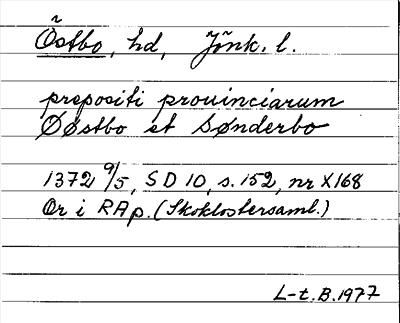 Östbo, hd, Jönk. l.
prepositi prouinciarum
Øøstbo et Sønderbo
1372 9/5, SD 10, s. 152, nr X168
Or i RAp. (Skoklostersaml.)
L-t. B. 1977